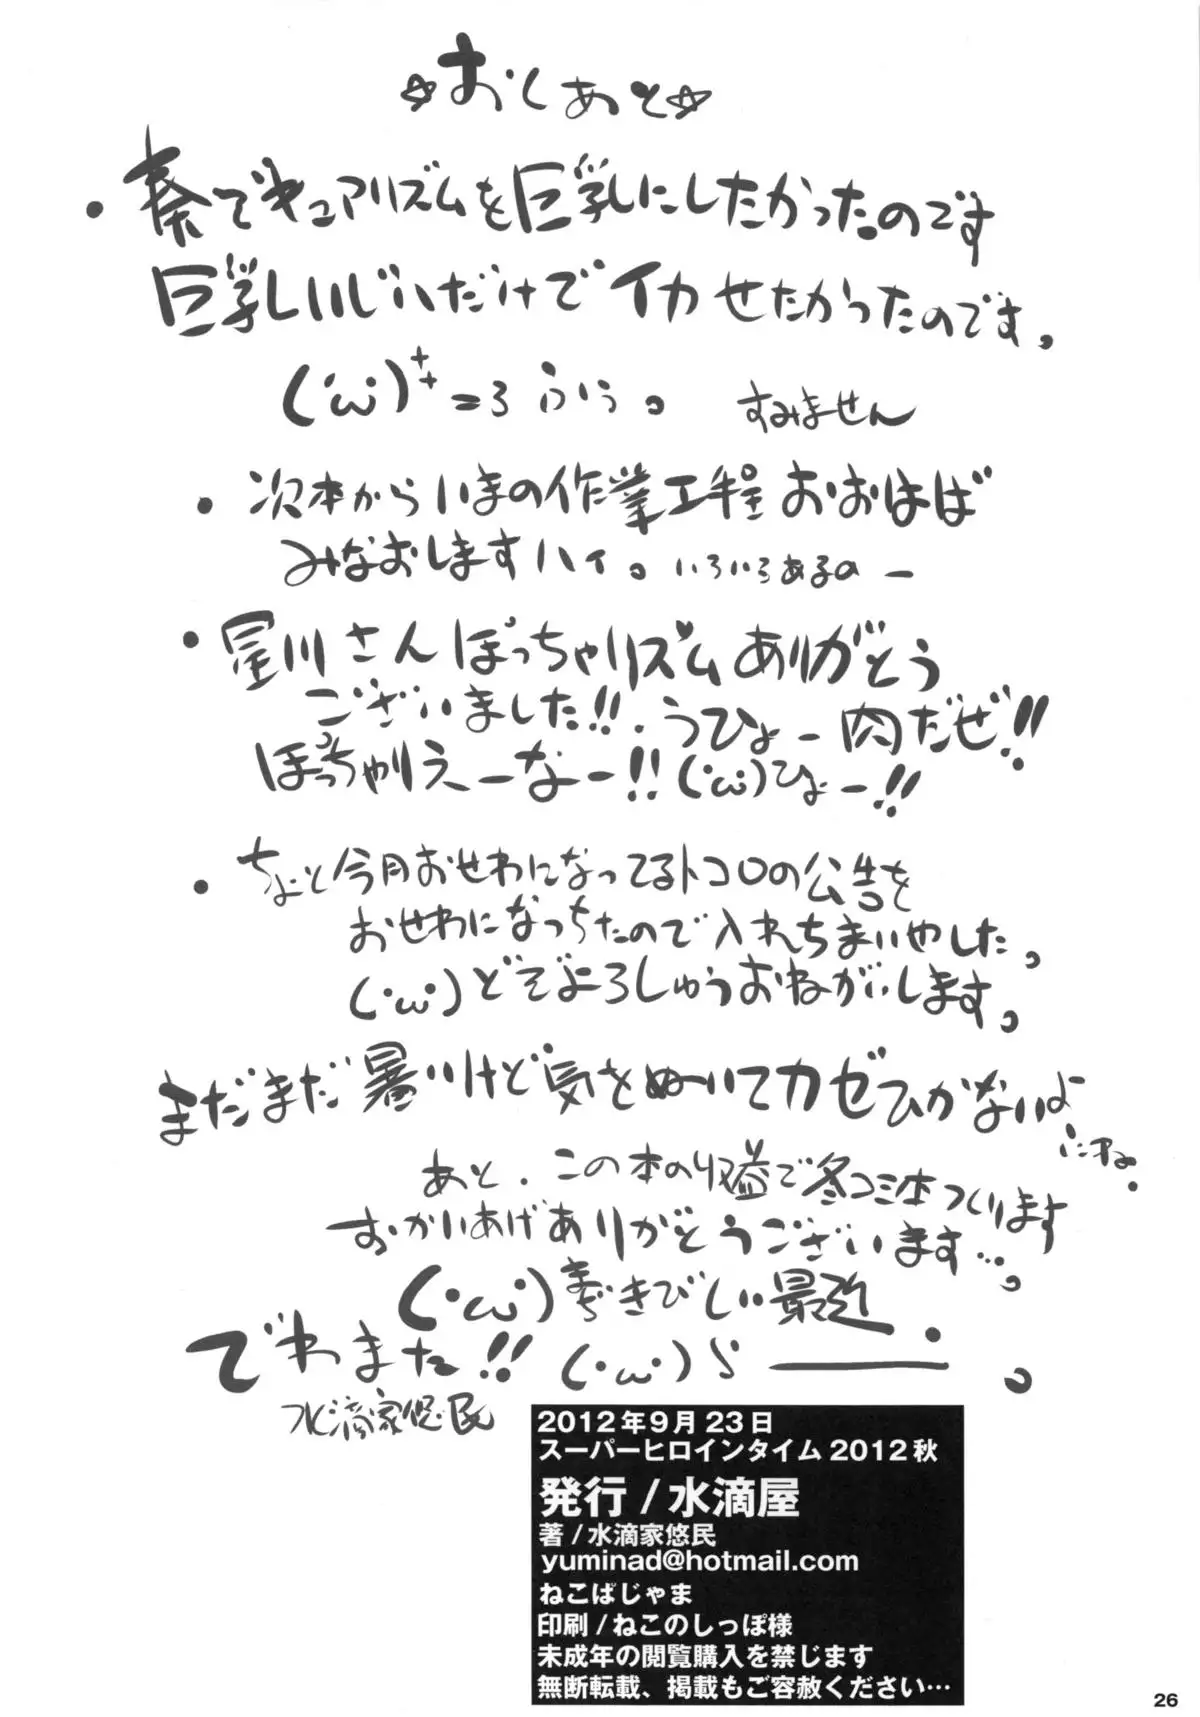 ☆おしあと☆
・奏でキュアリズムを巨乳にしたかったのです
巨乳いじいだけでイカせたかったのです。
(´ω`)++=3 ふぅ。 すみません
・次本からいまの作業工程おおはば
みなおしますハイ。いろいろあるのー
・星川さんぽっちゃリズムありがとう
ございました!!.うひょー肉だぜ!!
ぽっちゃりえーなー!!(・ω・)ひょー!!
・ちょと今月おせわになってるトコロの公告を
おせわになっちたので入れちまいやした。
(・ω・)どぞよろしゅうおねがいします。
まだまだ暑いけど気をぬいてカゼひかないよ
にね。
あと、この本の収益で冬コミ本つくります
おかいあげありがとうございます…。
(・ω・)きびしい最近
でわまた!!(・ω・)ノシ
水滴家悠民
2012年9月23日
スーパーヒロインタイム2012秋
発行/水滴屋
著/水滴家悠民
yuminad@hotmail.com
ねこぱじゃま
印刷/ねこのしっぽ様
未成年の閲覧購入を禁じます
無断転載、掲載もご容赦ください…
26